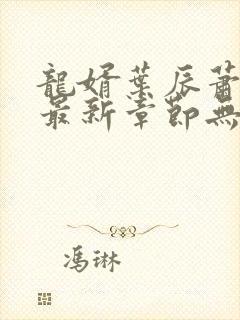 龍婿葉辰蕭
最新章節無
馮琳